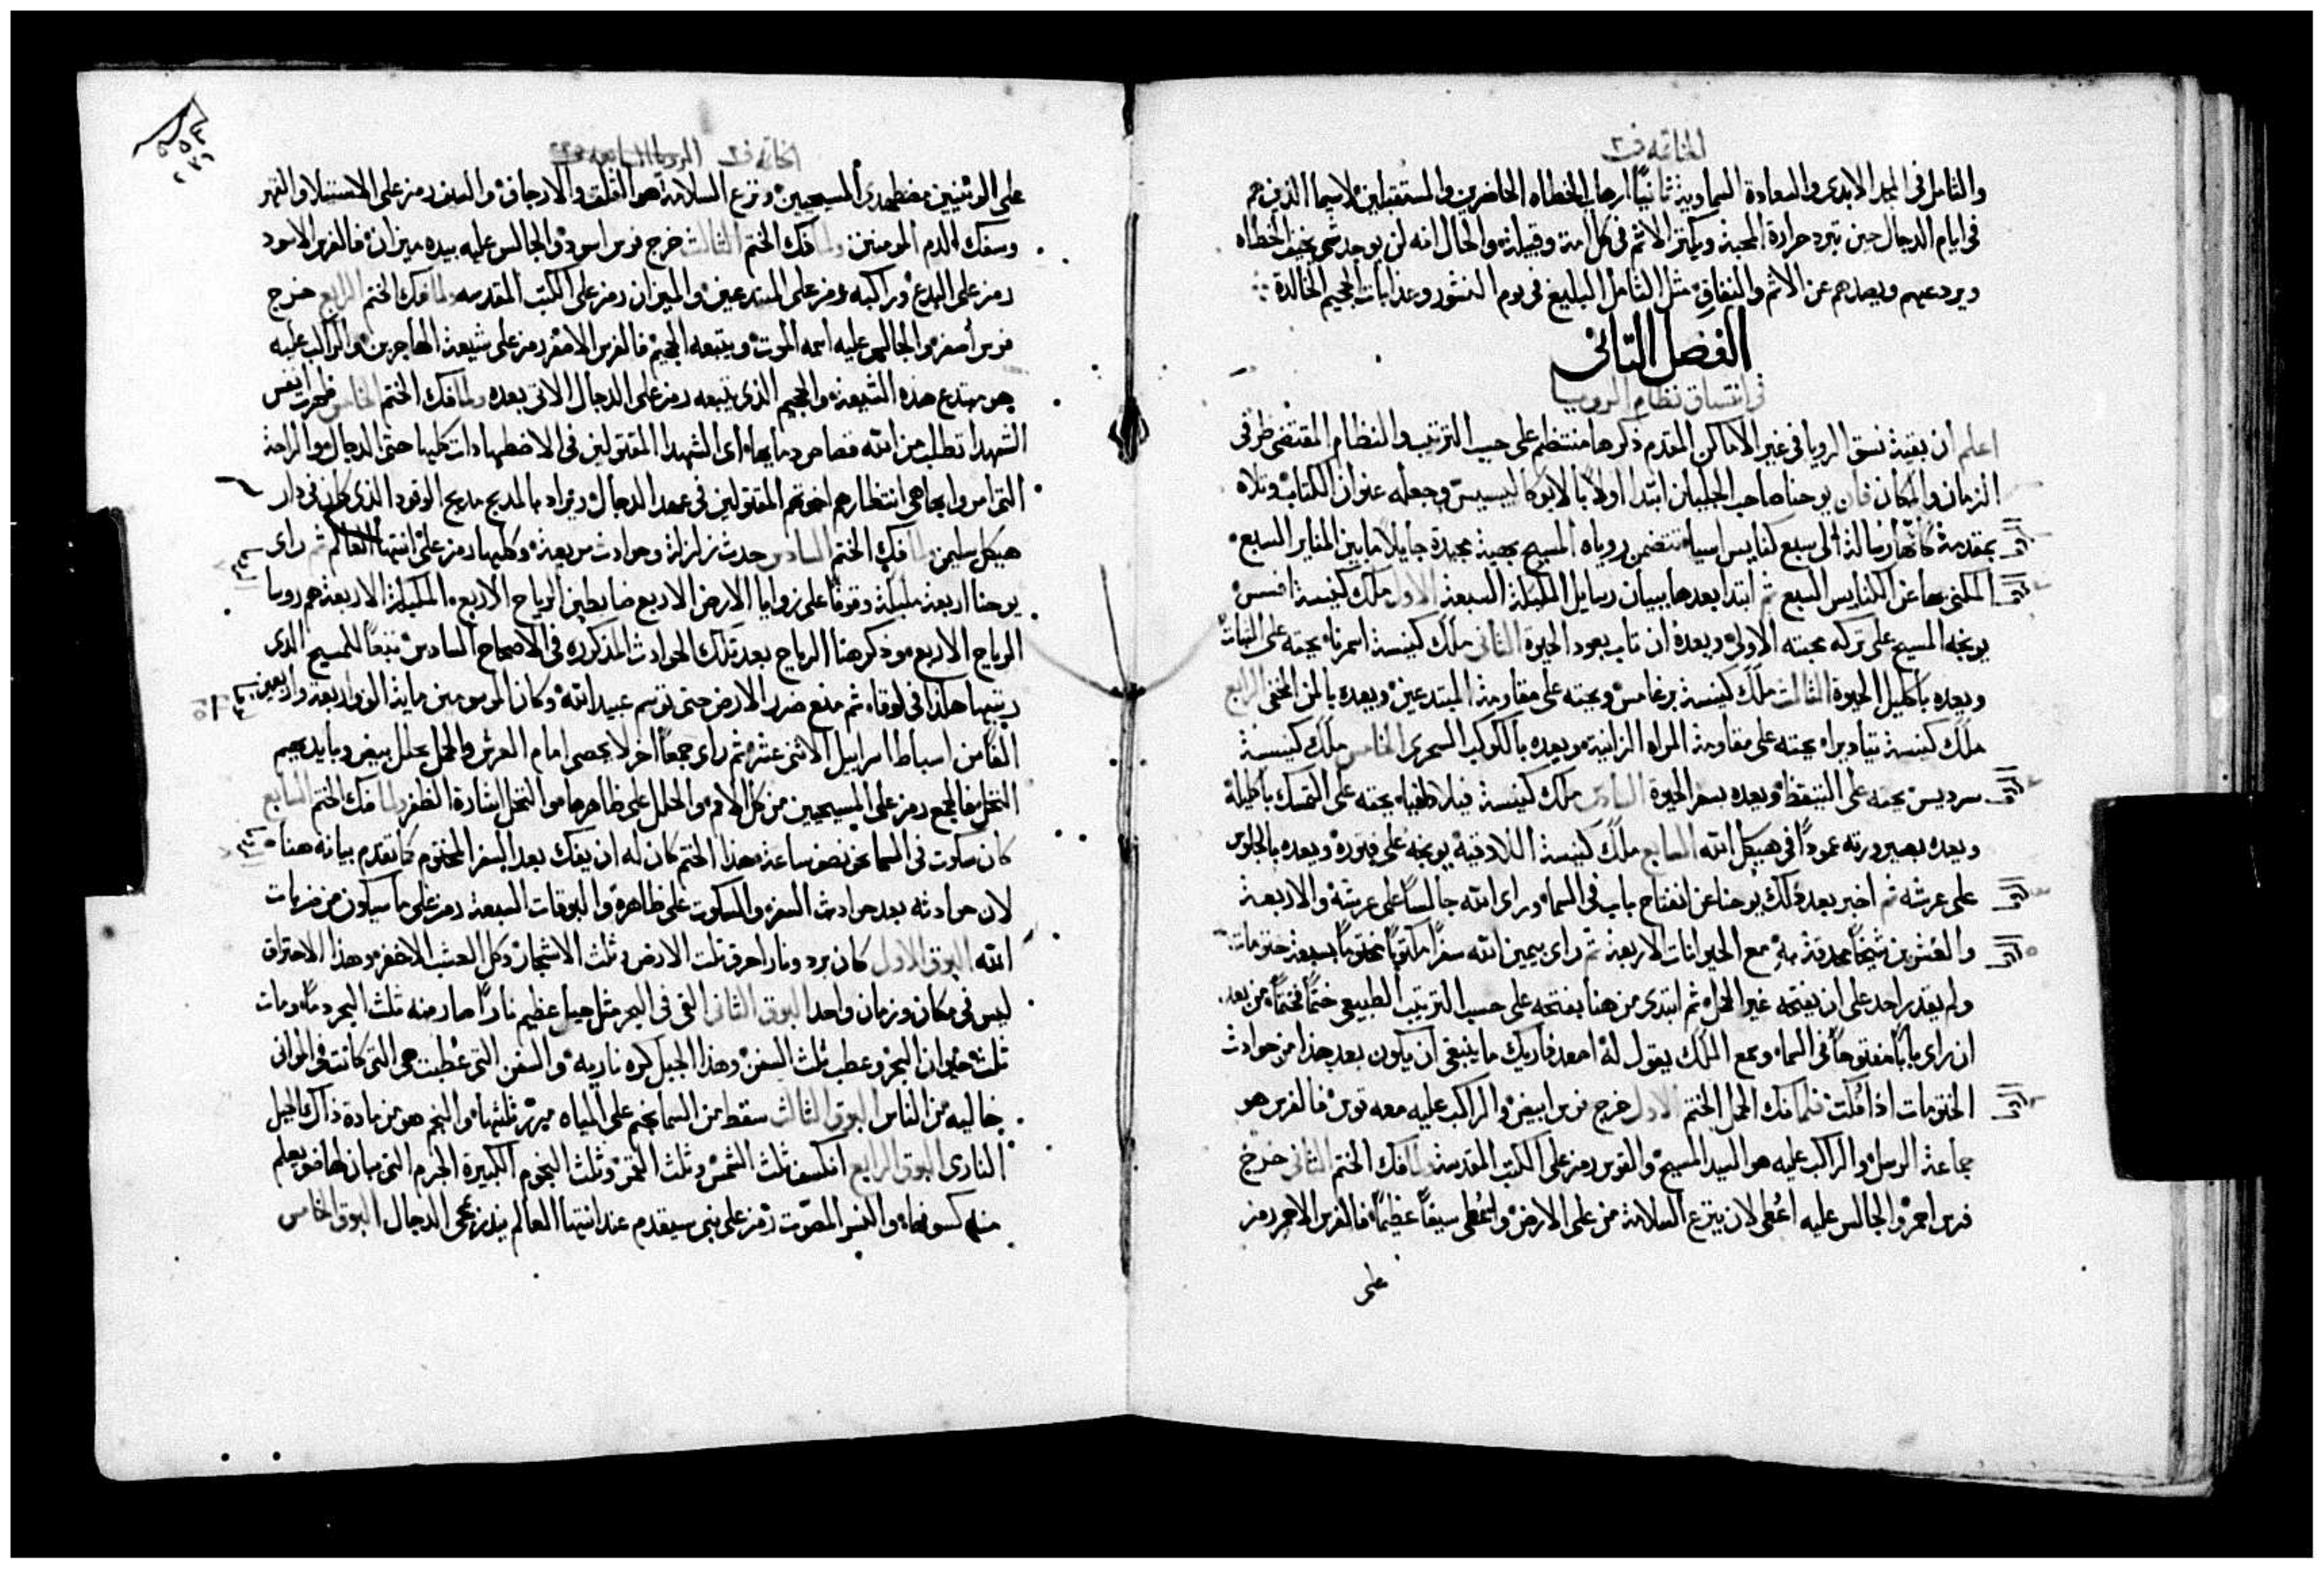 الخاتمة ف٢
والتامل في المجد الابدي والسعادة السماوية ثانيًا ارهاب الخطاه الحاضرين والمستقبلين لاسيما الذين هم
في ايام الدجال حين تبرد حرارة المحبة ويكثر الاثم في كل امة وقبيلة والحال انه لن يوجد شي يخيف الخطاه
ويردعهم ويصدهم عن الاثم والنفاق مثل التامل البليغ في يوم النشور وعذابات الجحيم الخالدة
الفصل الثاني
في اتساق نظام الرويا
اعلم ان بقية نسق الرويا في غير الاماكن المقدم ذكرها منتظم على حسب الترتيب والنظام المقتضي ظرفى
الزمان والمكان فان يوحنا صاحب الجليان ابتدا اولاً بالابوكاليبسيس وجعله عنوان الكتاب وتلاه
بمقدمة كانها رسالة الى سبع كنايس اسيا تتضمن روياه المسيح بهية مجيدة جايلاً مابين المناير السبع
المكنى بها عن الكنايس السبع ثم ابتدا بعدها ببيان رسايل الملايكة السبعة الاول ملاك كنيسة افسس
يوبخه المسيح على تركه محبته الاولى ويعده ان تاب بعود الحيوة الثاني ملاك كنيسة اسمرنا يحثه على الثبات
ويعده باكليل الحيوة الثالث ملاك كنيسة برغامس ويحثه على مقاومة المبتدعين ويعده بالمن المخفى الرابع
ملاك كنيسة تياديرا يحثه على مقاومة المراه الزانية ويعده بالكوكب السحرى الخامس ملاك كنيسة
سرديس يحثه على التيقظ ويعده بسفر الحيوة السادس ملاك كنيسة فيلادلفيا يحثه على التمسك باكليله
ويعده بصيرورته عمودًا في هيكل الله السابع ملاك كنيسة اللاذقية يوبخه على فتوره ويعده بالجلوس
على عرشه ثم اخبر بعد ذلك يوحنا عن انفتاح باب في السما وراى الله جالسًا على عرشه والاربعة
والعشرين شيخًا محدقة به مع الحيوانات الاربعة ثم راى بيمين الله سفرًا مكتوبًا مختومًا بسبعة ختومات
ولم يقدر احد على ان يفتحه غير الحمل ثم ابتدى من هنا بفتحه على حسب الترتيب الطبيعي ختمًا فختمًا من بعد
ان راى بابًا مفتوحًا في السما وسمع الملاك يقول له اصعد فاريك ما ينبغي ان يكون بعد هذا من حوادث
الختومات اذا فكت فلما فك الحمل الختم الاول خرج فرس ابيض والراكب عليه معه قوس فالفرس هو
جماعة الرسل والراكب عليه هو السيد المسيح والقوس رمز على الكتب المقدسة ولما فك الختم الثاني خرج
فرس احمر والجالس عليه اعطى لان ينزع السلامة من على الارض واعطى سيفًا عظيمًا فالفرس الاحمر رمز
على
الخاتمة ف٢ الرويا السابعة
على الوثنيين مضطهدي المسيحيين ونزع السلامة هو القلق والارجاف والسيف رمز على الاستيلا والقهر
وسفك الدم المومنين ولما فك الختم الثالث خرج فرس اسود والجالس عليه بيده ميزان فالفرس الاسود
رمز على البدع وراكبه رمز على المبتدعين والميزان رمز على الكتب المقدسه ولما فك الختم الرابع خرج
فرس اصفر والجالس عليه اسمه الموت ويتبعه الجحيم فالفرس الاصفر رمز على شيعة الهاجرين والراكب عليه
هو مبتدع هذه الشيعة والجحيم الذي يتبعه رمز على الدجال الاتى بعده ولما فك الختم الخامس ظهرت انفس
الشهدا تطلب من الله قصاص دمايها اى الشهدا المقتولين في الاضطهادات كلها حتى الدجال والراحة
التي امروا بها هي انتظارهم اخوتهم المقتولين في عهد الدجال ويراد بالمذبح مذبح الوقود الذي كان في دار
هيكل سليمن ولما فك الختم السادس حدث زلزلة وحوادث مريعة وكلها رمز على انتها العالم ثم راى
يوحنا اربعة ملايكة وقوفًا على زوايا الارض الاربع ضابطين الرياح الاربع الملايكة الاربعة هم روسا
الرياح الاربع وذكر هنا الرياح بعد تلك الحوادث المذكوره في الاصحاح السادس تتبعًا للمسيح الذي
رتبها هكذا في لوقا ثم منع ضرر الارض حتى توسم عبيد الله وكان الموسومين ماية الف واربعة واربعين
الفًا من اسباط اسراييل الاثنى عشر ثم راى جمعًا اخر لا يحصى امام العرش والحمل بحلل بيض وبايديهم
النخل فالجمع رمز على المسيحيين من كل الامم والحلل على ظاهرها والنخل اشارة الظفر ولما فك الختم السابع
كان سكوت في السما نحو نصف ساعة هذا الختم كان له ان يفك بعد السفر المختوم كما تقدم بيانه هناك
لان حوادثه بعد حوادث السفر والسكوت على ظاهره والبوقات السبعة رمز على ما سيكون من ضربات
الله البوق الاول كان برد ونار احرق ثلث الارض وثلث الاشجار وكل العشب الاخضر وهذا الاحتراق
ليس في مكان وزمان واحد البوق الثاني القى في البحر مثل جبل عظيم نارًا صار منه ثلث البحر دمًا ومات
ثلث حيوان البحر وعطب ثلث السفن وهذا الجبل كره ناريه والسفن التي عطبت هي التي كانت في المواني
خاليه من الناس البوق الثالث سقط من السما نجم على المياه ميرر ثلثها والنجم هو من مادة ذاك الجبل
النارى البوق الرابع انكسف ثلث الشمس وثلث القمر وثلث النجوم الكبيرة الجرم التي بان لها ضو يعلم
منه كسوفها والنسر المصوت رمز على نبى سيقدم عند انتها العالم ينذر بمجى الدجال البوق الخامس